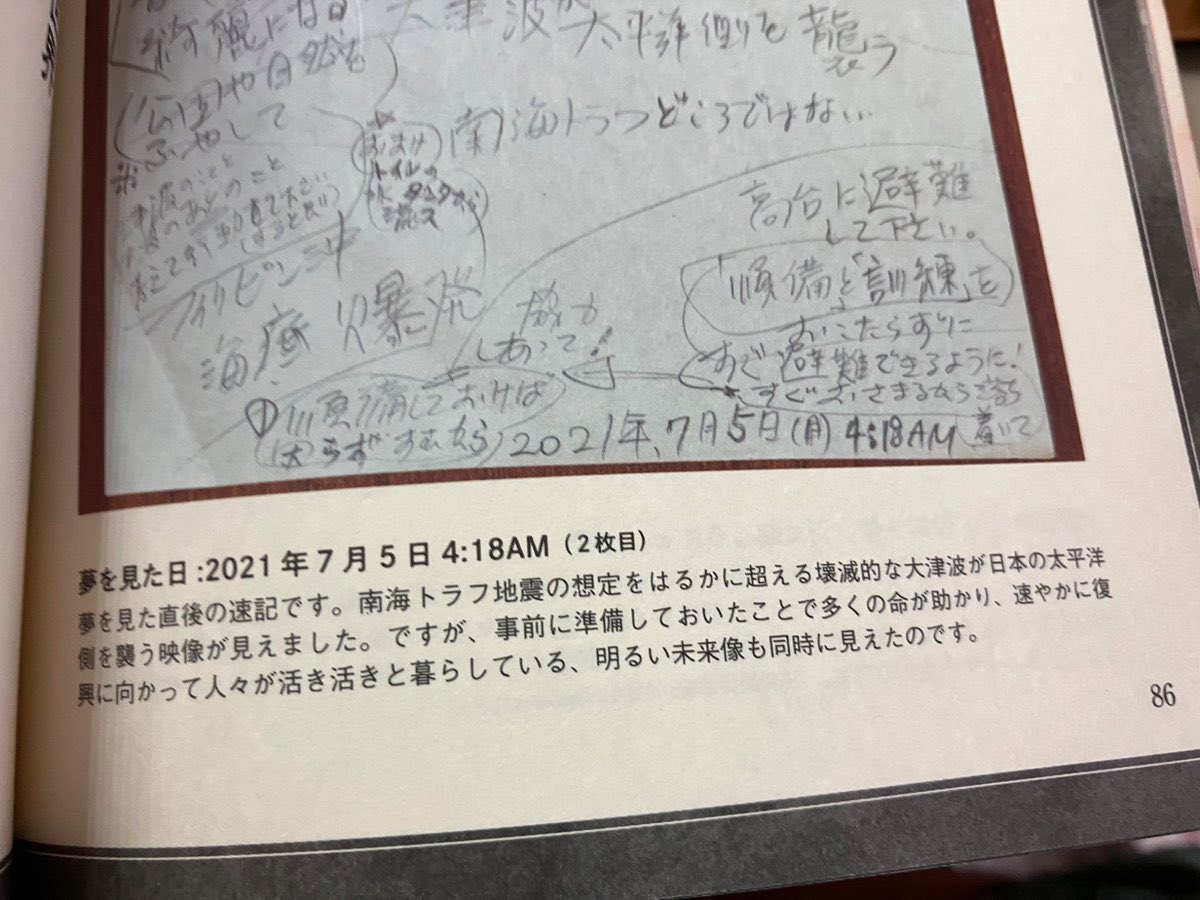 大津波が太平洋側を襲う
綺麗になる
公園や自然を
ふやして
南海トラフどころではない…
おまけ
トイレの
流す
高台に避難
して下さい。
フィリピン沖
海底火爆発
協力
しあって!
「順備と「訓練」を
おこたらずに
すぐ避難できるように!
すぐおさまるなら落ち
着いて
①順備しておけば
困らずすむなら
2021年、7月5日(月)4:18AM
夢を見た日:2021年7月5日 4:18AM(2枚目)
夢を見た直後の速記です。南海トラフ地震の想定をはるかに超える壊滅的な大津波が日本の太平洋
側を襲う映像が見えました。ですが、事前に準備しておいたことで多くの命が助かり、速やかに復
興に向かって人々が活き活きと暮らしている、明るい未来像も同時に見えたのです。
86